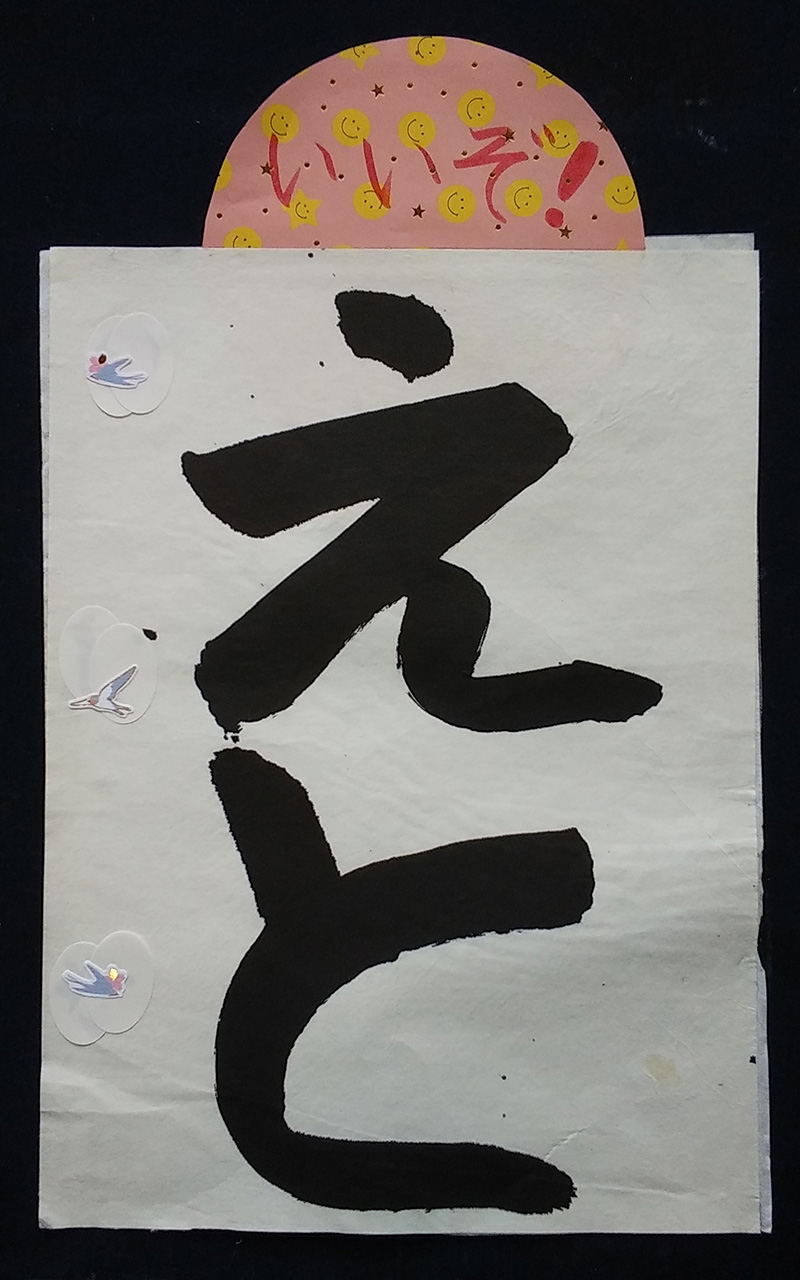 いいぞ!
えと